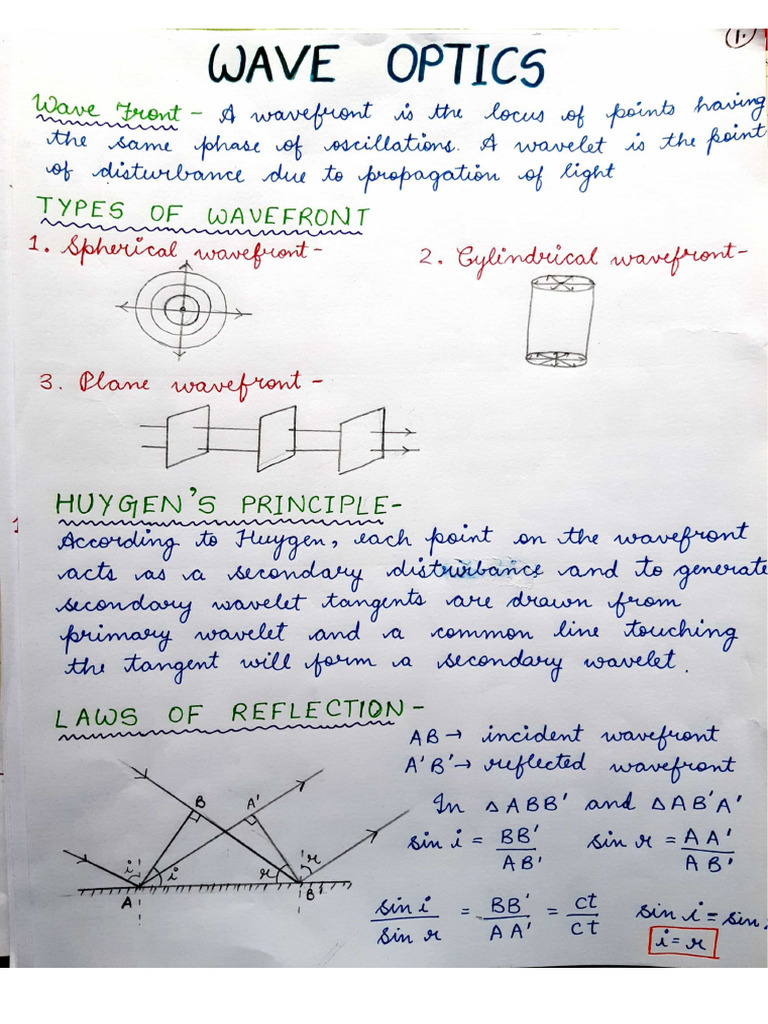 1.
WAVE OPTICS
Wave Front - A wavefront is the locus of points having
the same phase of oscillations. A wavelet is the point
of disturbance due to propagation of light
TYPES OF WAVEFRONT
1. Spherical wavefront -
2. Cylindrical wavefront -
3. Plane wavefront -
HUYGEN'S PRINCIPLE -
According to Huygen, each point on the wavefront
acts as a secondary disturbance and to generate
secondary wavelet tangents are drawn from
primary wavelet and a common line touching
the tangent will form a secondary wavelet.
LAWS OF REFLECTION -
AB → incident wavefront
A'B' → reflected wavefront
In △ABB' and △AB'A'
sin i = BB'/AB' sin r = AA'/AB'
sin i/sin r = BB'/AA' = ct/ct sin i = sin
i = r
B A'
i i r r
A B'